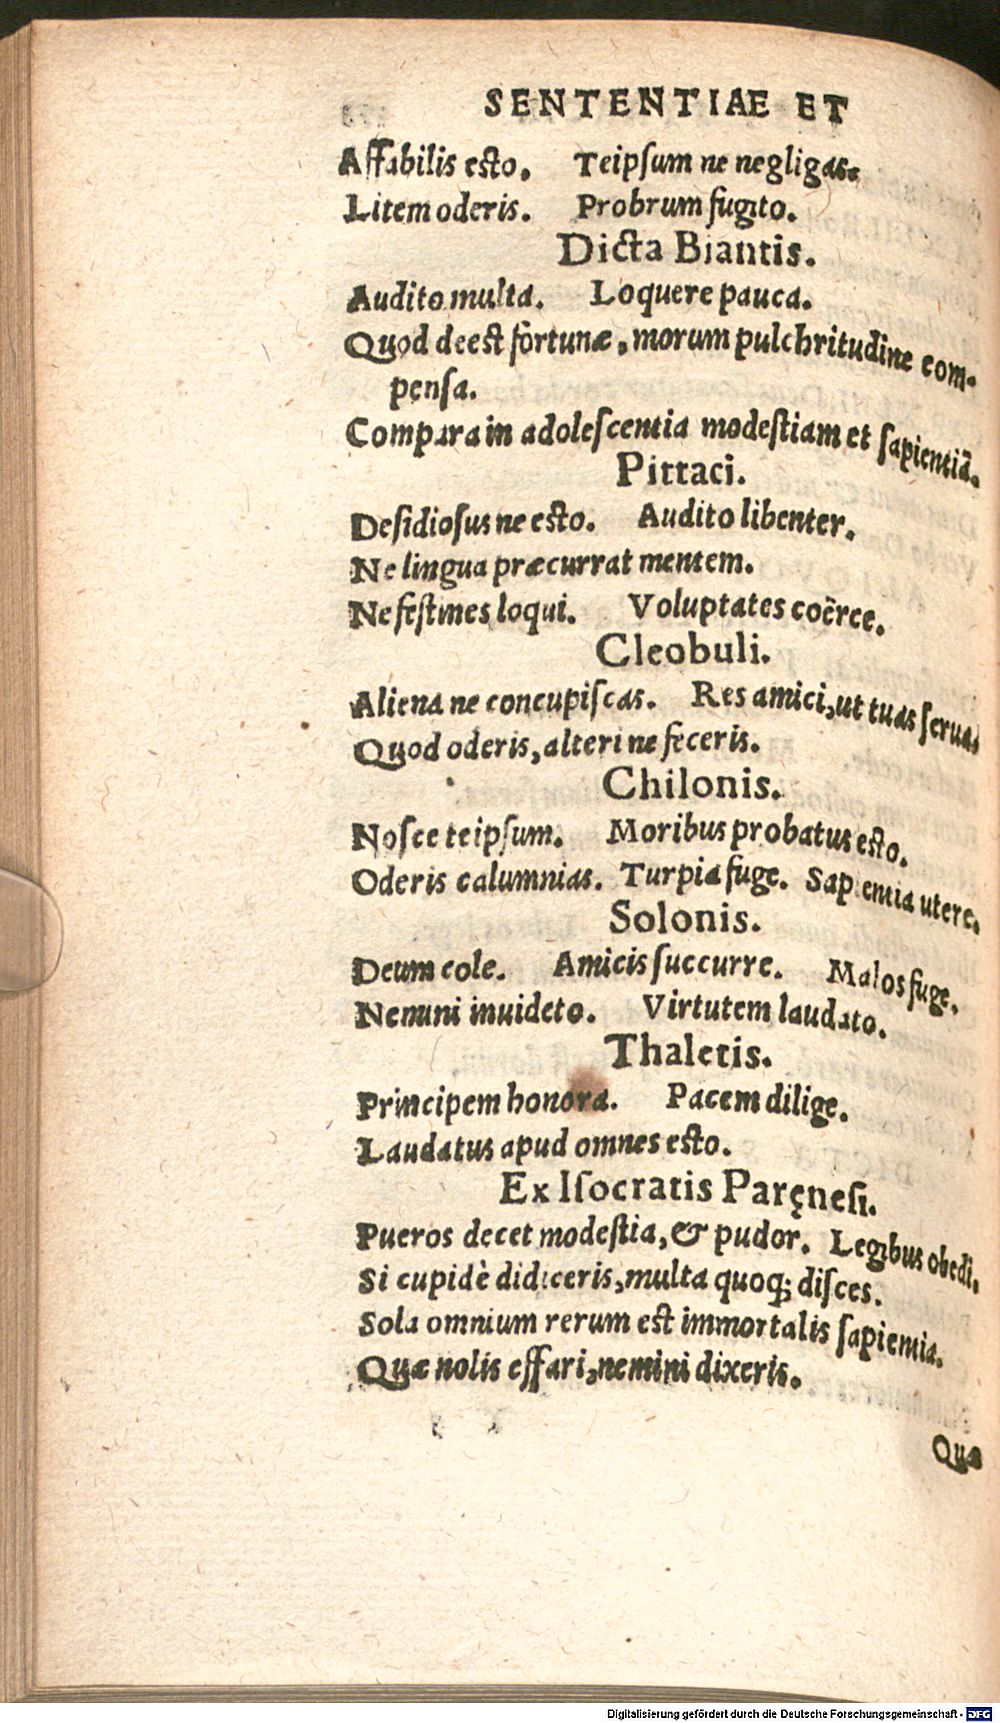 SENTENTIAE ET
Affabilis esto. Teipsum ne negligas.
Litem oderis. Probrum fugito.
Dicta Biantis.
Audito multa. Loquere pauca.
Quod deest fortunæ, morum pulchritudine com-
pensa.
Compara in adolescentia modestiam et sapientiā.
Pittaci.
Desidiosus ne esto. Audito libenter.
Ne lingua præcurrat mentem.
Ne festines loqui. Voluptates coërce.
Cleobuli.
Aliena ne concupiscas. Res amici, ut tuas seruas
Quod oderis, alteri ne feceris.
Chilonis.
Nosce teipsum. Moribus probatus esto.
Oderis calumnias. Turpia fuge. Sapientia utere.
Solonis.
Deum cole. Amicis succurre. Malos fuge.
Nemini inuideto. Virtutem laudato.
Thaletis.
Principem honora. Pacem dilige.
Laudatus apud omnes esto.
Ex Isocratis Paręnesi.
Pueros decet modestia, & pudor. Legibus obedi.
Si cupidè didiceris, multa quoq; disces.
Sola omnium rerum est immortalis sapientia.
Quæ nolis effari, nemini dixeris.
Quæ
Digitalisierung gefördert durch die Deutsche Forschungsgemeinschaft - DFG